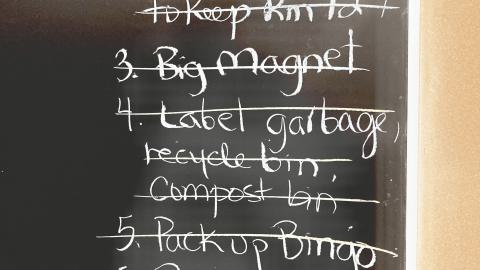 to keep Km
3. Big Magnet
4. Label garbage,
recycle bin,
Compost bin
5. Pack up Bingo